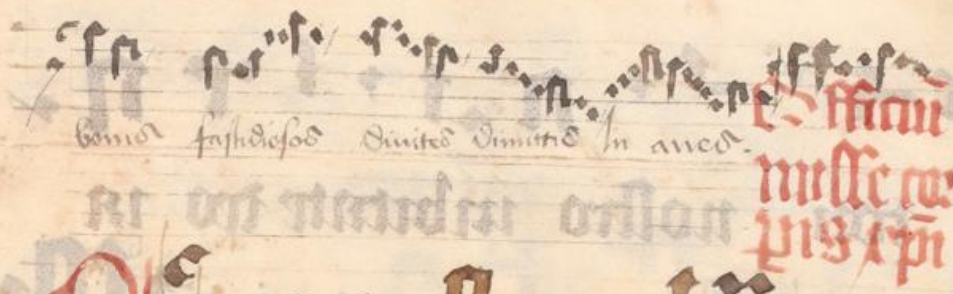 bonis fastidiosos divites dimittis in aues.
Officiũ
misse cor
p̲is xp̃i